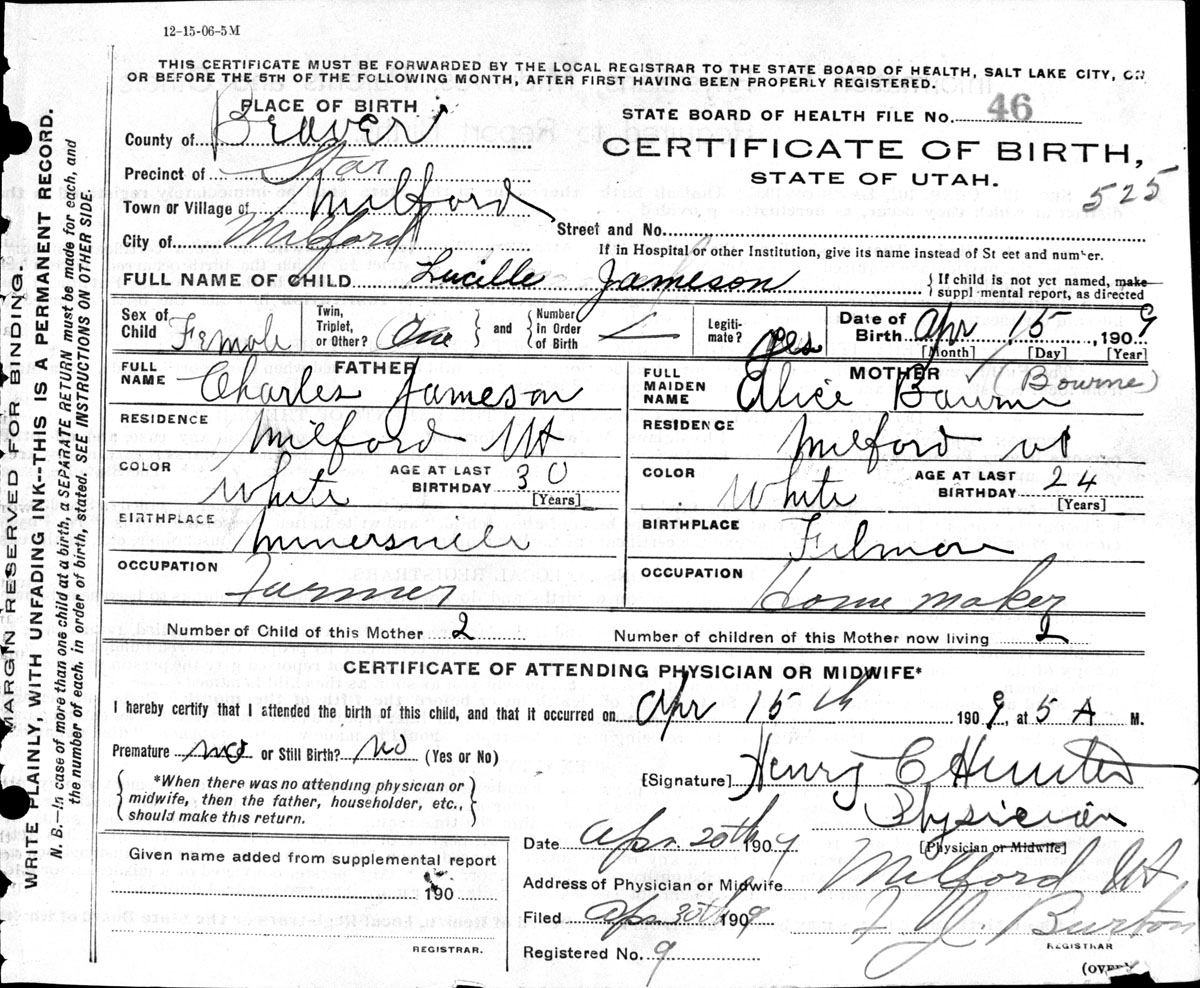 12-15-06-5M
THIS CERTIFICATE MUST BE FORWARDED BY THE LOCAL REGISTRAR TO THE STATE BOARD OF HEALTH, SALT LAKE CITY, ON
OR BEFORE THE 5TH OF THE FOLLOWING MONTH, AFTER FIRST HAVING BEEN PROPERLY REGISTERED.
MARGIN RESERVED FOR BINDING.
WRITE PLAINLY, WITH UNFADING INK--THIS IS A PERMANENT RECORD.
N. B.—In case of more than one child at a birth, a SEPARATE RETURN must be made for each, and
the number of each, in order of birth, stated. SEE INSTRUCTIONS ON OTHER SIDE.
PLACE OF BIRTH
County of Beaver
Precinct of Star
Town or Village of Milford
City of Milford
STATE BOARD OF HEALTH FILE No. 46
CERTIFICATE OF BIRTH,
STATE OF UTAH.
525
Street and No.
If in Hospital or other Institution, give its name instead of St eet and number.
FULL NAME OF CHILD Lucille Jameson { If child is not yet named, make
suppl mental report, as directed
Sex of Child Female
Twin, Triplet, or Other? One
and
Number in Order of Birth
Legiti- mate? yes
Date of Birth Apr 15, 1909
[Month] [Day] [Year]
FATHER
FULL NAME Charles Jameson
RESIDENCE Milford Ut
COLOR White AGE AT LAST BIRTHDAY 30 [Years]
BIRTHPLACE Minersville
OCCUPATION Farmer
MOTHER
FULL MAIDEN NAME Alice Bourne (Bourne)
RESIDENCE Milford Ut
COLOR White AGE AT LAST BIRTHDAY 24 [Years]
BIRTHPLACE Filmore
OCCUPATION Home maker
Number of Child of this Mother 2
Number of children of this Mother now living 2
CERTIFICATE OF ATTENDING PHYSICIAN OR MIDWIFE*
I hereby certify that I attended the birth of this child, and that it occurred on Apr 15th 1909, at 5 A M.
Premature no or Still Birth? No (Yes or No)
*When there was no attending physician or
midwife, then the father, householder, etc.,
should make this return.
[Signature] Henry C Hunter
Physician
[Physician or Midwife]
Given name added from supplemental report
190
REGISTRAR.
Date Apr. 20th 1909
Address of Physician or Midwife Milford Ut
Filed Apr 30th 1909
Burton
REGISTRAR
Registered No. 9
(OVER)